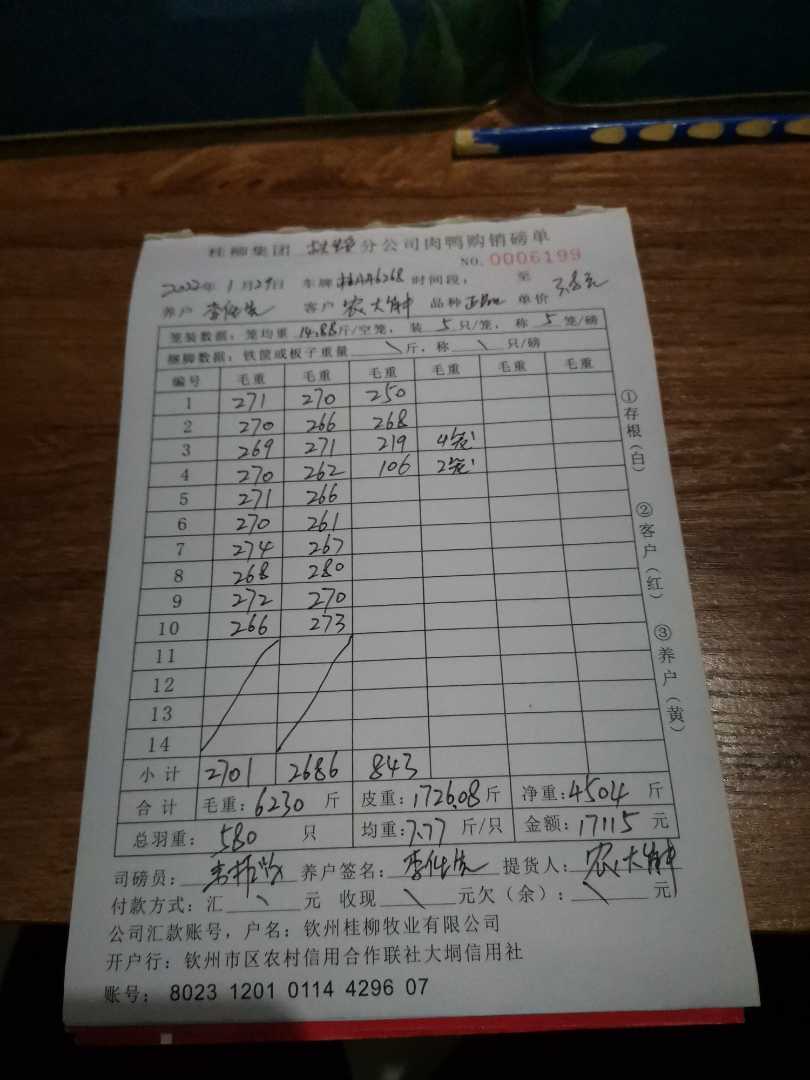 桂柳集团 分公司肉鸭购销磅单
NO. 0006199
2022年 1月29日 车牌 桂 6268 时间段： 至
养户 李 客户 农大 品种 单价 3.8元
笼装数据：笼均重 14.88斤/空笼， 装 5 只/笼， 称 5 笼/磅
捆脚数据：铁筐或板子重量 \ 斤，称 \ 只/磅
编号 毛重 毛重 毛重 毛重 毛重 毛重
1 271 270 250
2 270 266 268
3 269 271 219 4笼
4 270 262 106 2笼
5 271 266
6 270 261
7 274 267
8 268 280
9 272 270
10 266 273
11
12
13
14
小计 2701 2686 843
合计 毛重：6230 斤 皮重：1726.08斤 净重：4504 斤
总羽重： 580 只 均重：7.77 斤/只 金额：17115 元
司磅员： 养户签名：李 提货人：农大
付款方式：汇 \ 元 收现 \ 元欠（余）： \ 元
公司汇款账号，户名：钦州桂柳牧业有限公司
开户行：钦州市区农村信用合作联社大垌信用社
账号： 8023 1201 0114 4296 07
①存根（白）
②客户（红）
③养户（黄）